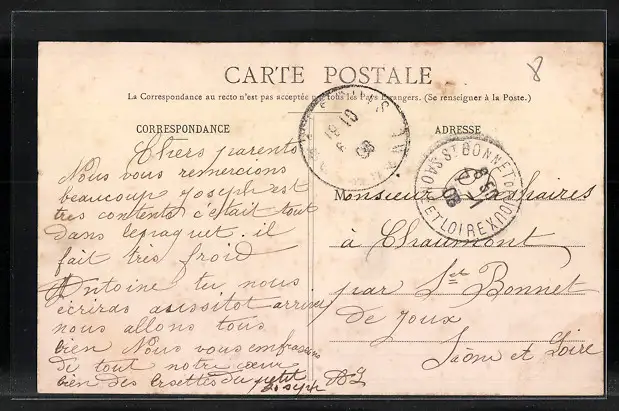 8
CARTE POSTALE
La Correspondance au recto n'est pas acceptée par tous les Pays Etrangers. (Se renseigner à la Poste.)
CORRESPONDANCE
ADRESSE
Chers parents
Nous vous remercions
beaucoup joseph est
tres contents c'était tout
dans lepaquet. il
fait très froid
Antoine tu nous
écriras aussitot arriver
nous allons tous
bien Nous vous embrassons
de tout notre cœur
bien des
du petit
Joseph
Monsieur
à Chaumont
par St Bonnet
de Joux
Saône et Loire
ST BONNET DE JOUX
ET LOIRE
08